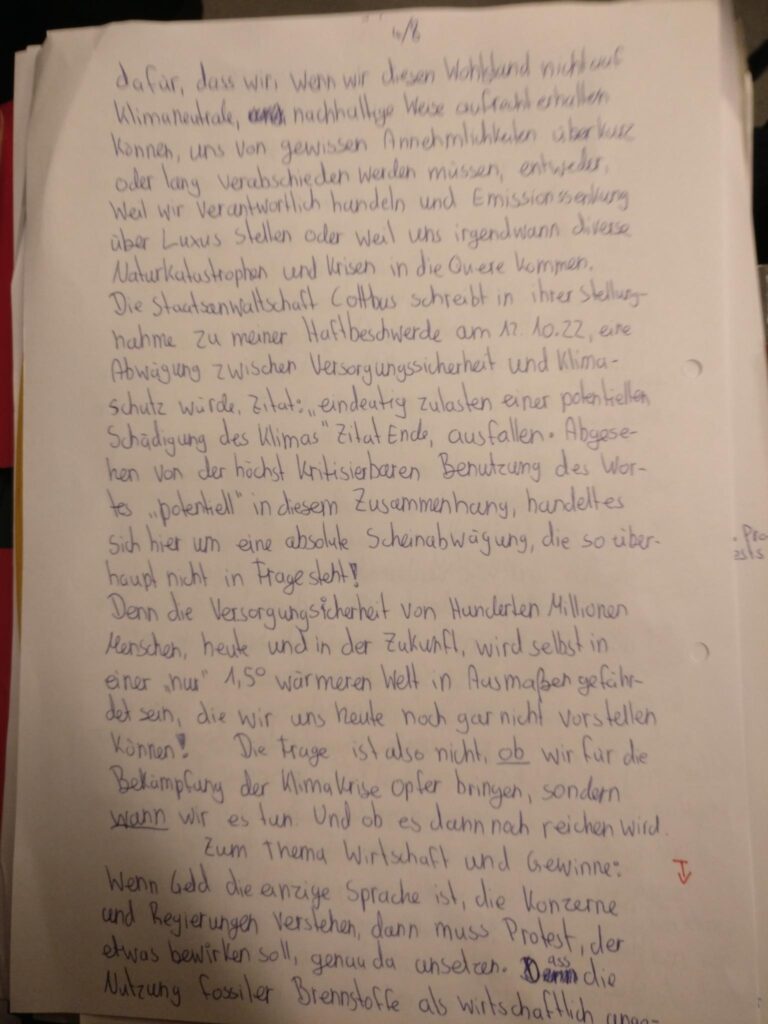 4/8
dafür, dass wir, wenn wir diesen Wohlstand nicht auf
Klimaneutrale, nachhaltige Weise aufrecht erhalten
können, uns von gewissen Annehmlichkeiten über kurz
oder lang verabschieden werden müssen, entweder,
weil wir verantwortlich handeln und Emissionssenkung
über Luxus stellen oder weil uns irgendwann diverse
Naturkatastrophen und Krisen in die Quere kommen.
Die Staatsanwaltschaft Cottbus schreibt in ihrer Stellung-
nahme zu meiner Haftbeschwerde am 12.10.22, eine
Abwägung zwischen Versorgungssicherheit und Klima-
schutz würde, Zitat: „eindeutig zulasten einer potentiellen
Schädigung des Klimas" Zitat Ende, ausfallen. Abgese-
hen von der höchst kritisierbaren Benutzung des Wor-
tes „potentiell" in diesem Zusammenhang, handelt es
sich hier um eine absolute Scheinabwägung, die so über-
haupt nicht in Frage steht!
Denn die Versorgungsicherheit von Hunderten Millionen
Menschen, heute und in der Zukunft, wird selbst in
einer „nur" 1,5° wärmeren Welt in Ausmaßen gefähr-
det sein, die wir uns heute noch gar nicht vorstellen
können! Die Frage ist also nicht, ob wir für die
Bekämpfung der Klimakrise Opfer bringen, sondern
wann wir es tun. Und ob es dann noch reichen wird.
Zum Thema Wirtschaft und Gewinne:
Wenn Geld die einzige Sprache ist, die Konzerne
und Regierungen verstehen, dann muss Protest, der
etwas bewirken soll, genau da ansetzen. Dass die
Nutzung fossiler Brennstoffe als wirtschaftlich ange-